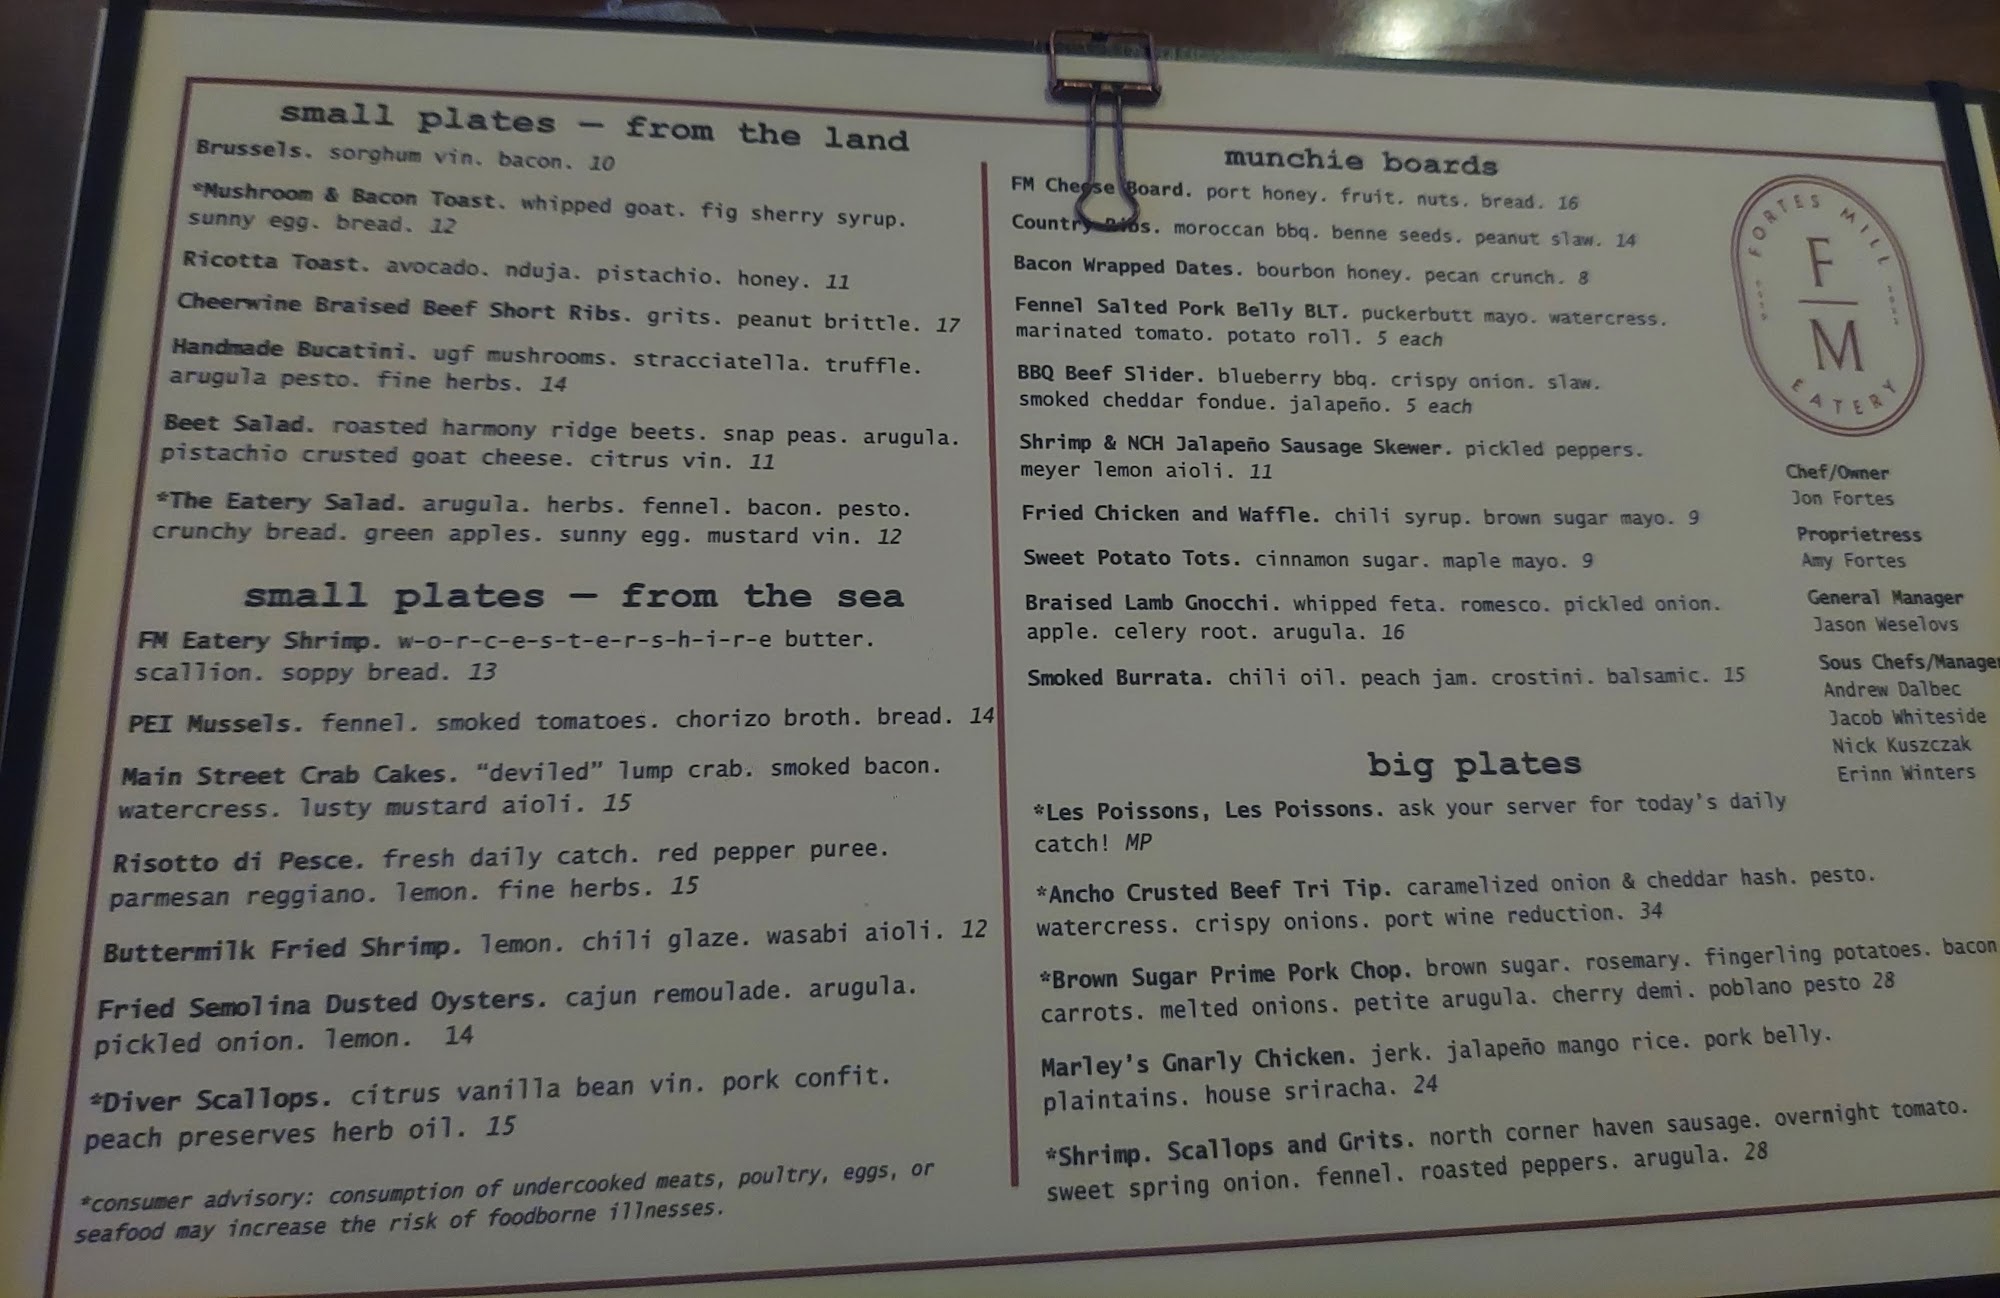 small plates — from the land
Brussels. sorghum vin. bacon. 10
*Mushroom & Bacon Toast. whipped goat. fig sherry syrup.
sunny egg. bread. 12
Ricotta Toast. avocado. nduja. pistachio. honey. 11
Cheerwine Braised Beef Short Ribs. grits. peanut brittle. 17
Handmade Bucatini. ugf mushrooms. stracciatella. truffle.
arugula pesto. fine herbs. 14
Beet Salad. roasted harmony ridge beets. snap peas. arugula.
pistachio crusted goat cheese. citrus vin. 11
*The Eatery Salad. arugula. herbs. fennel. bacon. pesto.
crunchy bread. green apples. sunny egg. mustard vin. 12
small plates — from the sea
FM Eatery Shrimp. w-o-r-c-e-s-t-e-r-s-h-i-r-e butter.
scallion. soppy bread. 13
PEI Mussels. fennel. smoked tomatoes. chorizo broth. bread. 14
Main Street Crab Cakes. “deviled” lump crab. smoked bacon.
watercress. lusty mustard aioli. 15
Risotto di Pesce. fresh daily catch. red pepper puree.
parmesan reggiano. lemon. fine herbs. 15
Buttermilk Fried Shrimp. lemon. chili glaze. wasabi aioli. 12
Fried Semolina Dusted Oysters. cajun remoulade. arugula.
pickled onion. lemon. 14
*Diver Scallops. citrus vanilla bean vin. pork confit.
peach preserves herb oil. 15
*consumer advisory: consumption of undercooked meats, poultry, eggs, or
seafood may increase the risk of foodborne illnesses.
munchie boards
FM Cheese Board. port honey. fruit. nuts. bread. 16
Country Ribs. moroccan bbq. benne seeds. peanut slaw. 14
Bacon Wrapped Dates. bourbon honey. pecan crunch. 8
Fennel Salted Pork Belly BLT. puckerbutt mayo. watercress.
marinated tomato. potato roll. 5 each
BBQ Beef Slider. blueberry bbq. crispy onion. slaw.
smoked cheddar fondue. jalapeño. 5 each
Shrimp & NCH Jalapeño Sausage Skewer. pickled peppers.
meyer lemon aioli. 11
Fried Chicken and Waffle. chili syrup. brown sugar mayo. 9
Sweet Potato Tots. cinnamon sugar. maple mayo. 9
Braised Lamb Gnocchi. whipped feta. romesco. pickled onion.
apple. celery root. arugula. 16
Smoked Burrata. chili oil. peach jam. crostini. balsamic. 15
big plates
*Les Poissons, Les Poissons. ask your server for today's daily
catch! MP
*Ancho Crusted Beef Tri Tip. caramelized onion & cheddar hash. pesto.
watercress. crispy onions. port wine reduction. 34
*Brown Sugar Prime Pork Chop. brown sugar. rosemary. fingerling potatoes. bacon
carrots. melted onions. petite arugula. cherry demi. poblano pesto 28
Marley's Gnarly Chicken. jerk. jalapeño mango rice. pork belly.
plaintains. house sriracha. 24
*Shrimp. Scallops and Grits. north corner haven sausage. overnight tomato.
sweet spring onion. fennel. roasted peppers. arugula. 28
FORTES MILL
F
M
EATERY
Chef/Owner
Jon Fortes
Proprietress
Amy Fortes
General Manager
Jason Weselovs
Sous Chefs/Manager
Andrew Dalbec
Jacob Whiteside
Nick Kuszczak
Erinn Winters